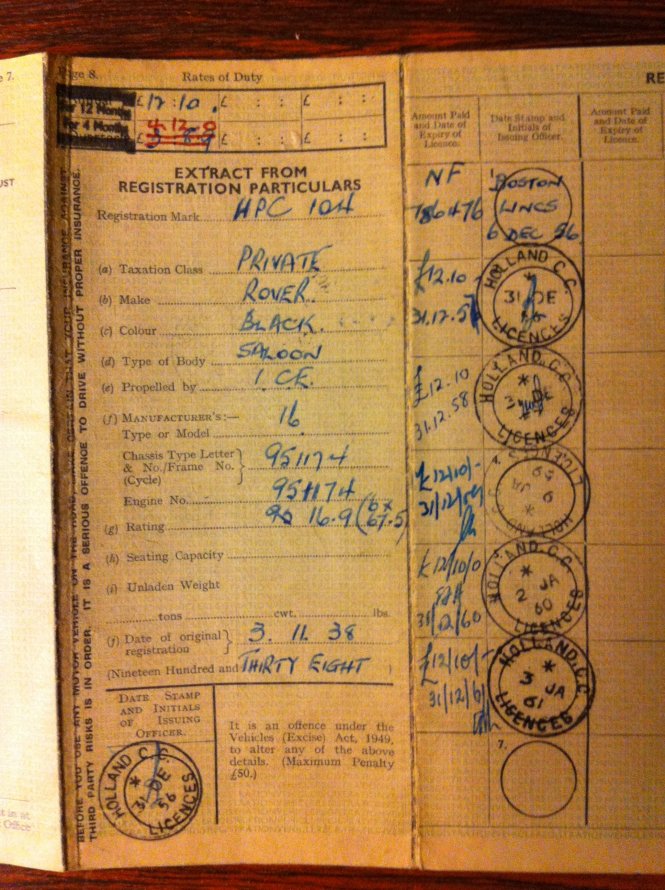 e 7.
Page 8.
Rates of Duty
Per 12 Months £12:10. £ : : £ : :
Per 4 Months 4 12 0 £ : : £ : :
EXTRACT FROM
REGISTRATION PARTICULARS
Registration Mark HPC 104
(a) Taxation Class PRIVATE
(b) Make ROVER.
(c) Colour BLACK.
(d) Type of Body SALOON
(e) Propelled by I.C.E.
(f) MANUFACTURER'S:—
Type or Model 16
Chassis Type Letter
& No./Frame No. 951174
(Cycle)
Engine No. 951174
(g) Rating 16.9 (6 x 67.5)
(h) Seating Capacity
(i) Unladen Weight
tons cwt. lbs.
(j) Date of original
registration 3. 11. 38
(Nineteen Hundred and THIRTY EIGHT )
DATE STAMP
AND INITIALS
OF ISSUING
OFFICER.
HOLLAND C.C.
* 31 DE 56
LICENCES
It is an offence under the
Vehicles (Excise) Act, 1949,
to alter any of the above
details. (Maximum Penalty
£50.)
BEFORE YOU USE ANY MOTOR VEHICLE ON THE ROAD, MAKE CERTAIN THAT YOUR INSURANCE AGAINST
THIRD PARTY RISKS IS IN ORDER. IT IS A SERIOUS OFFENCE TO DRIVE WITHOUT PROPER INSURANCE.
RE
Amount Paid
and Date of
Expiry of
Licence.
Date Stamp and
Initials of
Issuing Officer.
Amount Paid
and Date of
Expiry of
Licence.
NF
786476
1.
BOSTON
LINCS
6 DEC 56
£12.10
31.12.57
HOLLAND C.C.
31 DE
LICENCES
£12.10
31.12.58
HOLLAND C.C.
* 31 DE
LICENCES
£12/10/-
31/12/59
4.
HOLLAND C.C.
* 9 JA 59
LICENCES
£12/10/0
31/12/60
HOLLAND C.C.
* 2 JA 60
LICENCES
£12/10/-
31/12/61
HOLLAND C.C.
* 3 JA 61
LICENCES
7.